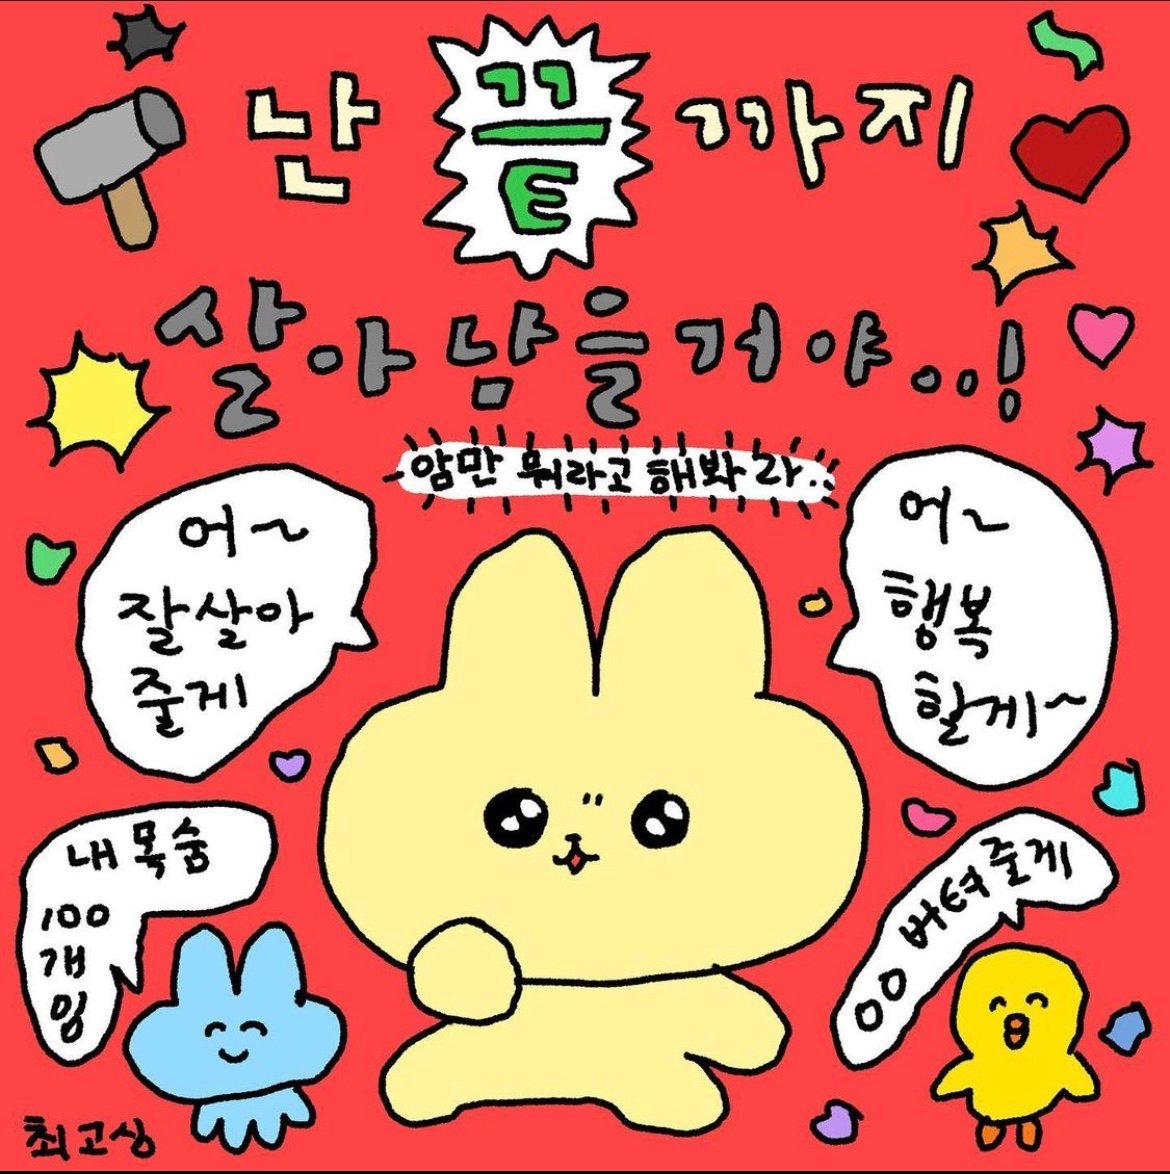 난 끝까지
살아남을거야..!
암만 뭐라고 해봐라..
어~
잘살아
줄게
어~
행복
할게~
내 목숨
100
개임
ㅇㅇ 버텨줄게
최고심